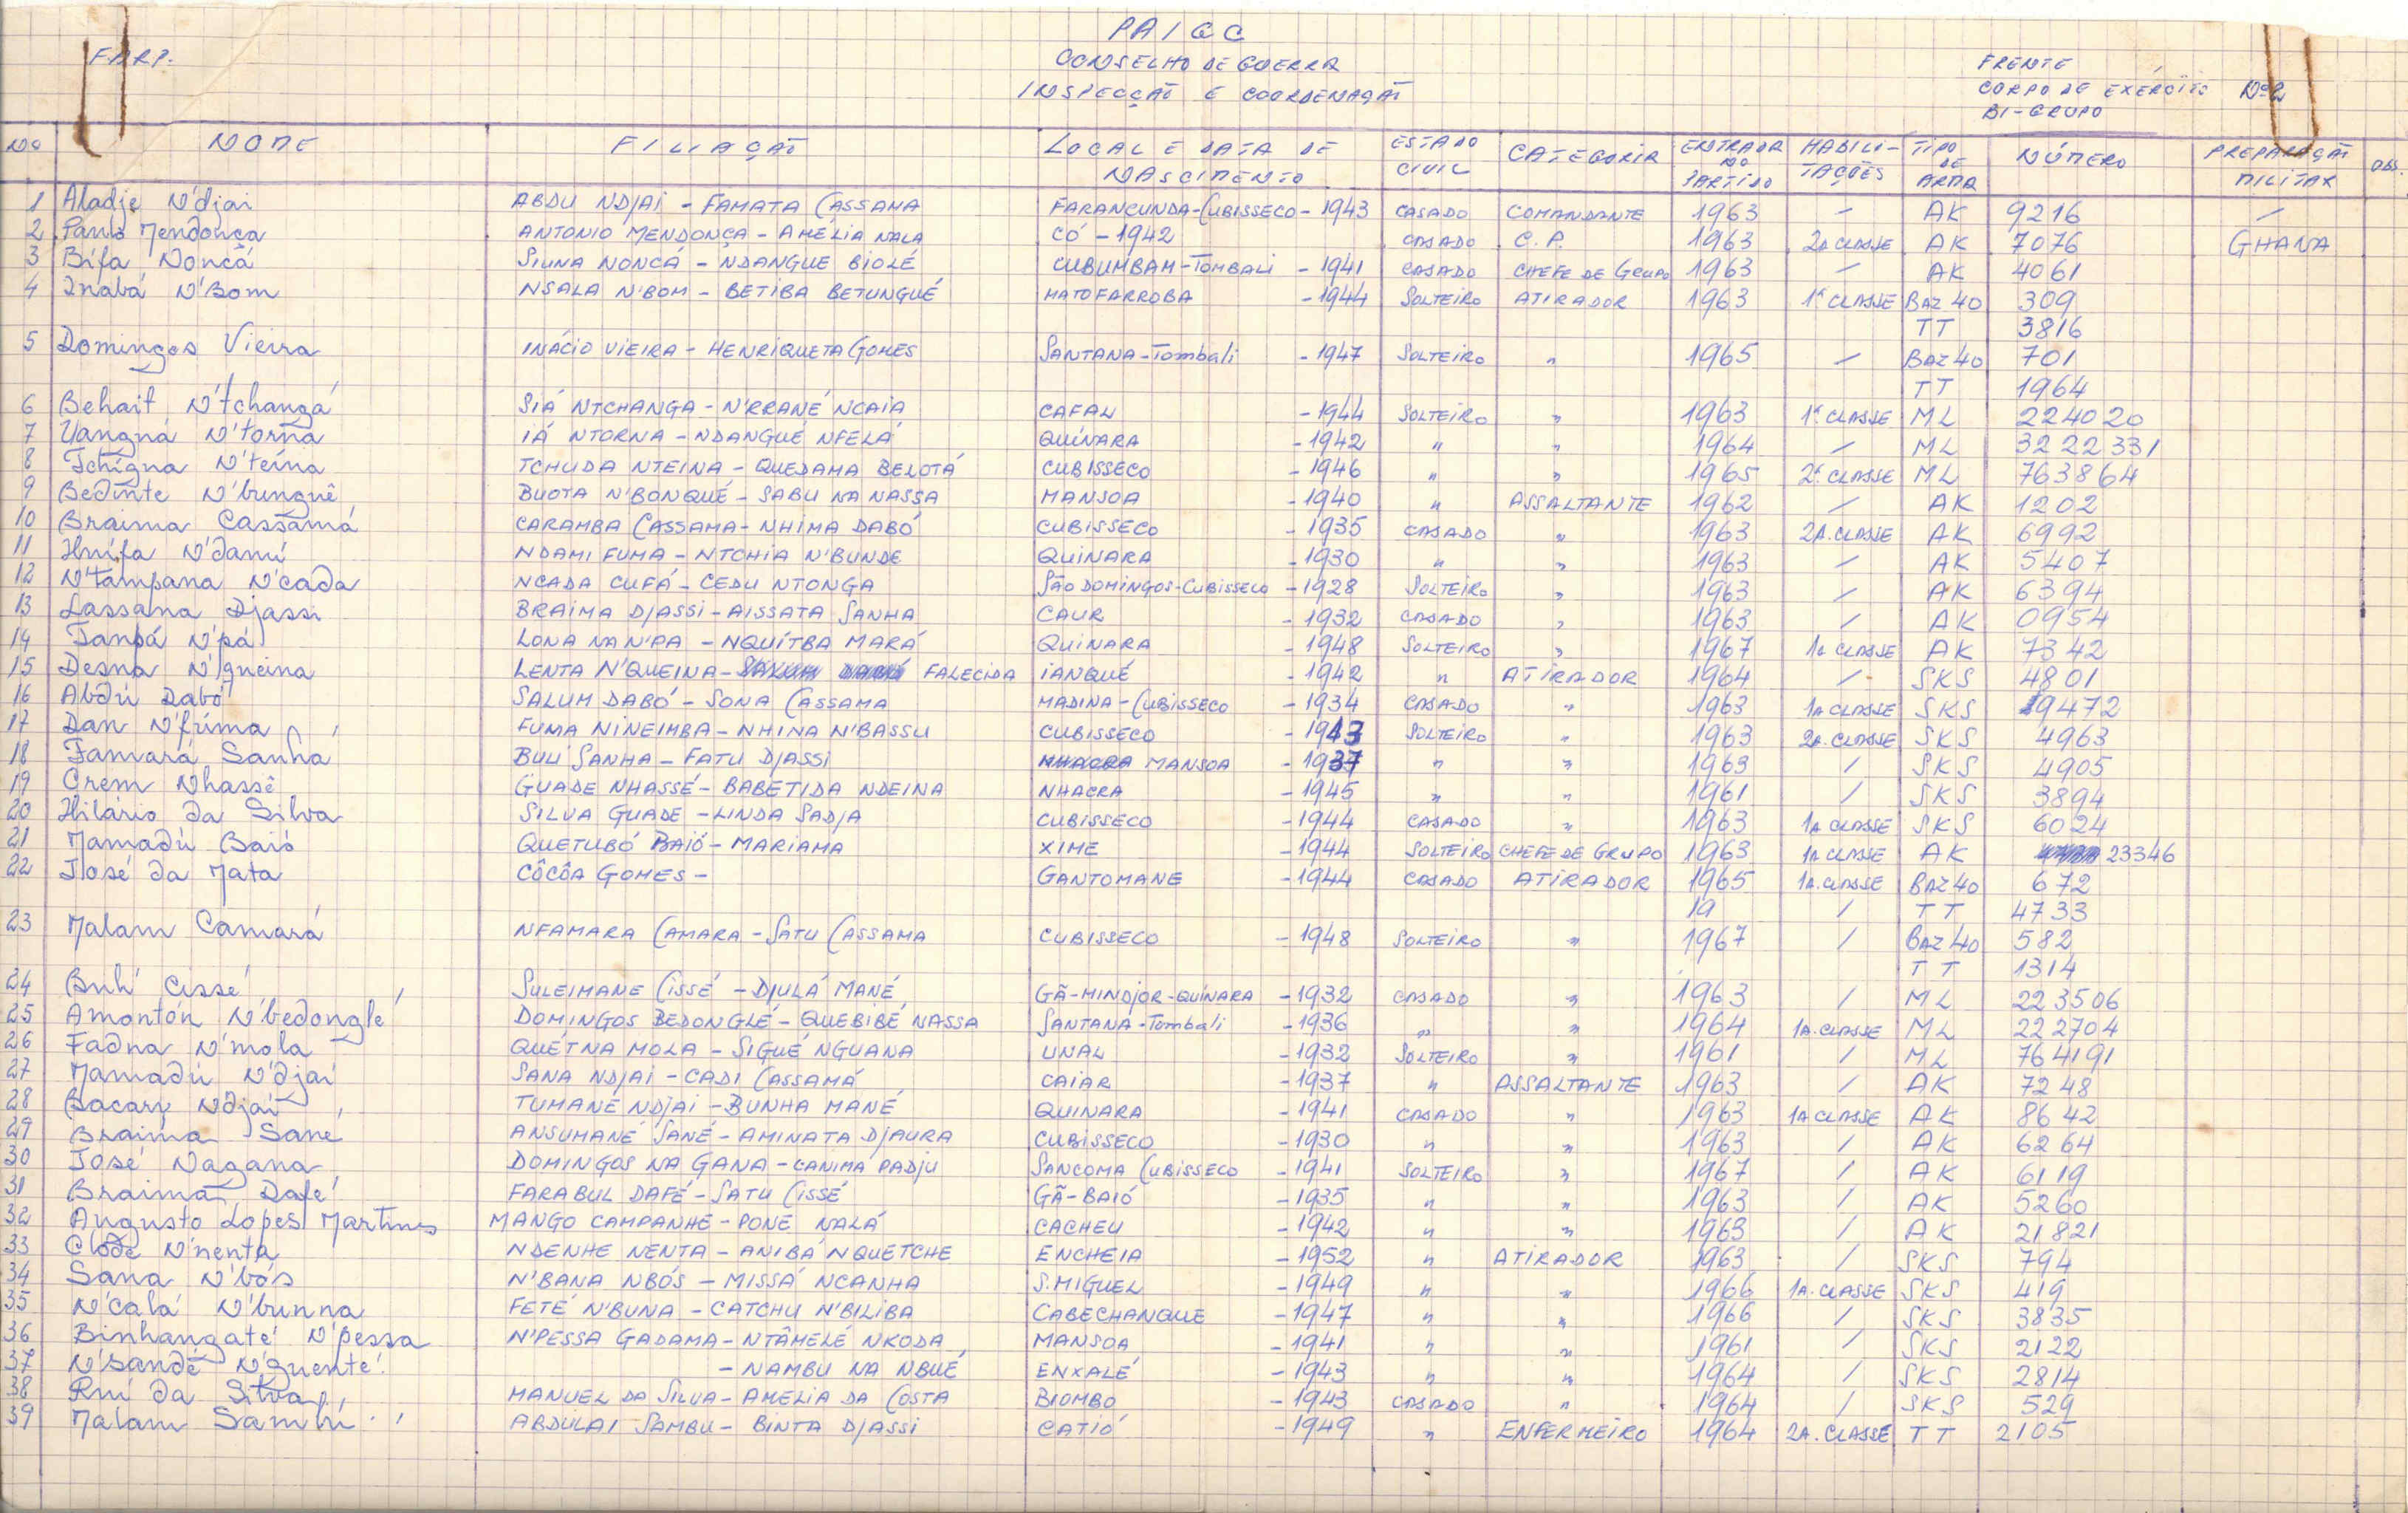 PAIGC
F.A.R.P.
CONSELHO DE GUERRA
INSPECÇÃO E COORDENAÇÃO
FRENTE
CORPO DE EXÉRCITO Nº 2
BI-GRUPO
Nº NOME FILIAÇÃO LOCAL E DATA DE NASCIMENTO ESTADO CIVIL CATEGORIA ENTRADA NO PARTIDO HABILITAÇÕES TIPO DE ARMA NÚMERO PREPARAÇÃO MILITAR OBS.
1 Aladje N'djai ABDU NDJAI - FAMATA CASSAMA FARANCUNDA-CUBISSECO - 1943 CASADO COMANDANTE 1963 / AK 9216 /
2 Paulo Mendonça ANTONIO MENDONÇA - AMÉLIA NALA CÓ - 1942 CASADO C.P. 1963 2A CLASSE AK 7076 GHANA
3 Bifa Noncá SIUNA NONCA - NDANGUE BIOLÉ CUBUMBAM-TOMBALI - 1941 CASADO CHEFE DE GRUPO 1963 / AK 4061
4 Inabá N'Bom NSALA N'BOM - BETIBA BETUNGUÉ MATOFARROBA - 1944 SOLTEIRO ATIRADOR 1963 1ª CLASSE BAZ 40 309
TT 3816
5 Domingos Vieira INÁCIO VIEIRA - HENRIQUETA GOMES SANTANA-Tombali - 1947 SOLTEIRO " 1965 / BAZ 40 701
TT 1964
6 Behait N'tchangá SIÁ NTCHANGA - N'RRANÉ NCAIA CAFAL - 1944 SOLTEIRO " 1963 1ª CLASSE ML 224020
7 Yangná N'torna IÁ NTORNA - NDANGUÉ NFELÁ QUÍNARA - 1942 " " 1964 / ML 3222331
8 Tchigna N'teina TCHUDA NTEINA - QUEDAMA BELOTÁ CUBISSECO - 1946 " " 1965 2ª CLASSE ML 763864
9 Bedinte N'bunguê BUOTA N'BONQUÉ - SABU NA NASSA MANSOA - 1940 " ASSALTANTE 1962 / AK 1202
10 Braima Cassamá CARAMBA CASSAMA - NHIMA DABÓ CUBISSECO - 1935 CASADO " 1963 2A. CLASSE AK 6992
11 N'dami NDAMI FUMA - NTCHIA N'BUNDE QUINARA - 1930 " " 1963 / AK 5407
12 N'tampana N'cada NCADA CUFÁ - CEDU NTONGA SÃO DOMINGOS-CUBISSECO - 1928 SOLTEIRO " 1963 / AK 6394
13 Lassana Djassi BRAIMA DJASSI - AISSATA SANHA CAUR - 1932 CASADO " 1963 / AK 0954
14 Tanbá N'pá LONA NA N'PA - NQUÍTBA MARÁ QUINARA - 1948 SOLTEIRO " 1967 1A CLASSE AK 7342
15 Desna N'gueina LENTA N'QUEINA - FALECIDA IANQUÉ - 1942 " ATIRADOR 1964 / SKS 4801
16 Abdú Dabó SALUM DABÓ - SONA CASSAMA MADINA-CUBISSECO - 1934 CASADO " 1963 1A CLASSE SKS 9472
17 Dan N'fuma FUMA NINEIMBA - NHINA N'BASSU CUBISSECO - 1943 SOLTEIRO " 1963 2A. CLASSE SKS 4963
18 Famará Sanhá BULI SANHA - FATU DJASSI NHACRA MANSOA - 1937 " " 1963 / SKS 4905
19 Crem Nhassê GUADE NHASSÉ - BABETIDA NDEINA NHACRA - 1945 " " 1961 / SKS 3894
20 Hilário da Silva SILVA GUADE - LINDA SADJA CUBISSECO - 1944 CASADO " 1963 1A CLASSE SKS 6024
21 Mamadú Baió QUETUBÓ BAIÓ - MARIAMA XIME - 1944 SOLTEIRO CHEFE DE GRUPO 1963 1A CLASSE AK 23346
22 José da Mata CÔCÔA GOMES - GANTOMANE - 1944 CASADO ATIRADOR 1965 1A. CLASSE BAZ 40 672
19 / TT 4733
23 Malam Camará NFAMARA CAMARA - SATU CASSAMA CUBISSECO - 1948 SOLTEIRO " 1967 / BAZ 40 582
TT 1314
24 Buli Cissé SULEIMANE CISSÉ - DJULÁ MANÉ GÃ-MINDJOR-QUÍNARA - 1932 CASADO " 1963 / ML 223506
25 Amonton N'bedonglé DOMINGOS BEDONGLÉ - QUEBIBÉ NASSA SANTANA-Tombali - 1936 " " 1964 1A. CLASSE ML 222704
26 Fadna N'mola QUÉTNA MOLA - SIGUÉ NGUANA UNAL - 1932 SOLTEIRO " 1961 / ML 764191
27 Mamadú N'djai SANA NDJAI - CADI CASSAMÁ CAIAR - 1937 " ASSALTANTE 1963 / AK 7248
28 Bacary Ndjai TUMANÉ NDJAI - BUNHA MANÉ QUINARA - 1941 CASADO " 1963 1A CLASSE AK 8642
29 Braima Sané ANSUMANÉ SANÉ - AMINATA DJAURA CUBISSECO - 1930 " " 1963 / AK 6264
30 José Nagana DOMINGOS NA GANA - CANIMA PADJU SANCOMA CUBISSECO - 1941 SOLTEIRO " 1967 / AK 6119
31 Braima Dafé FARABUL DAFÉ - SATU CISSÉ GÃ-BAIÓ - 1935 " " 1963 / AK 5260
32 Augusto Lopes Martins MANGO CAMPANHE - PONE NALÁ CACHEU - 1942 " " 1963 / AK 21821
33 Clode N'nenta NDENHE NENTA - ANIBÁ NQUETCHE ENCHEIA - 1952 " ATIRADOR 1963 / SKS 794
34 Sana N'bós N'BANA NBÓS - MISSÁ NCANHA S. MIGUEL - 1949 " " 1966 1A. CLASSE SKS 419
35 N'calá N'bunna FETÉ N'BUNA - CATCHU N'BILIBA CABECHANQUE - 1947 " " 1966 / SKS 3835
36 Binhangaté N'pessa N'PESSA GADAMA - NTÂMELÉ NKODA MANSOA - 1941 " " 1961 / SKS 2122
37 N'sandé N'guenté - NAMBU NA NBUÉ ENXALÉ - 1943 " " 1964 / SKS 2814
38 Rui da Silva MANUEL DA SILVA - AMELIA DA COSTA BIOMBO - 1943 CASADO " 1964 / SKS 529
39 Malam Sambú ABDULAI SAMBU - BINTA DJASSI CATIÓ - 1949 " ENFERMEIRO 1964 2A. CLASSE TT 2105